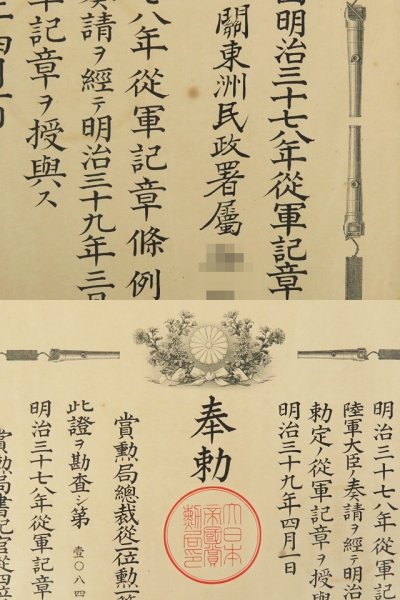 明治三十七八年從軍記章
關東洲民政署屬
七八年從軍記章條例
奏請ヲ經テ明治三十九年三
軍記章ヲ授與ス
年四月一日
明治三十七八年從
陸軍大臣ノ奏請ヲ經テ明治
勅定ノ從軍記章ヲ授與
明治三十九年四月一日
奉勅
大日本
帝國賞
勲局印
賞勲局總裁從一位勲一等
此證ヲ勘査シ第
壹〇八四
明治三十七八年從軍記章
賞勲局書記官從四位